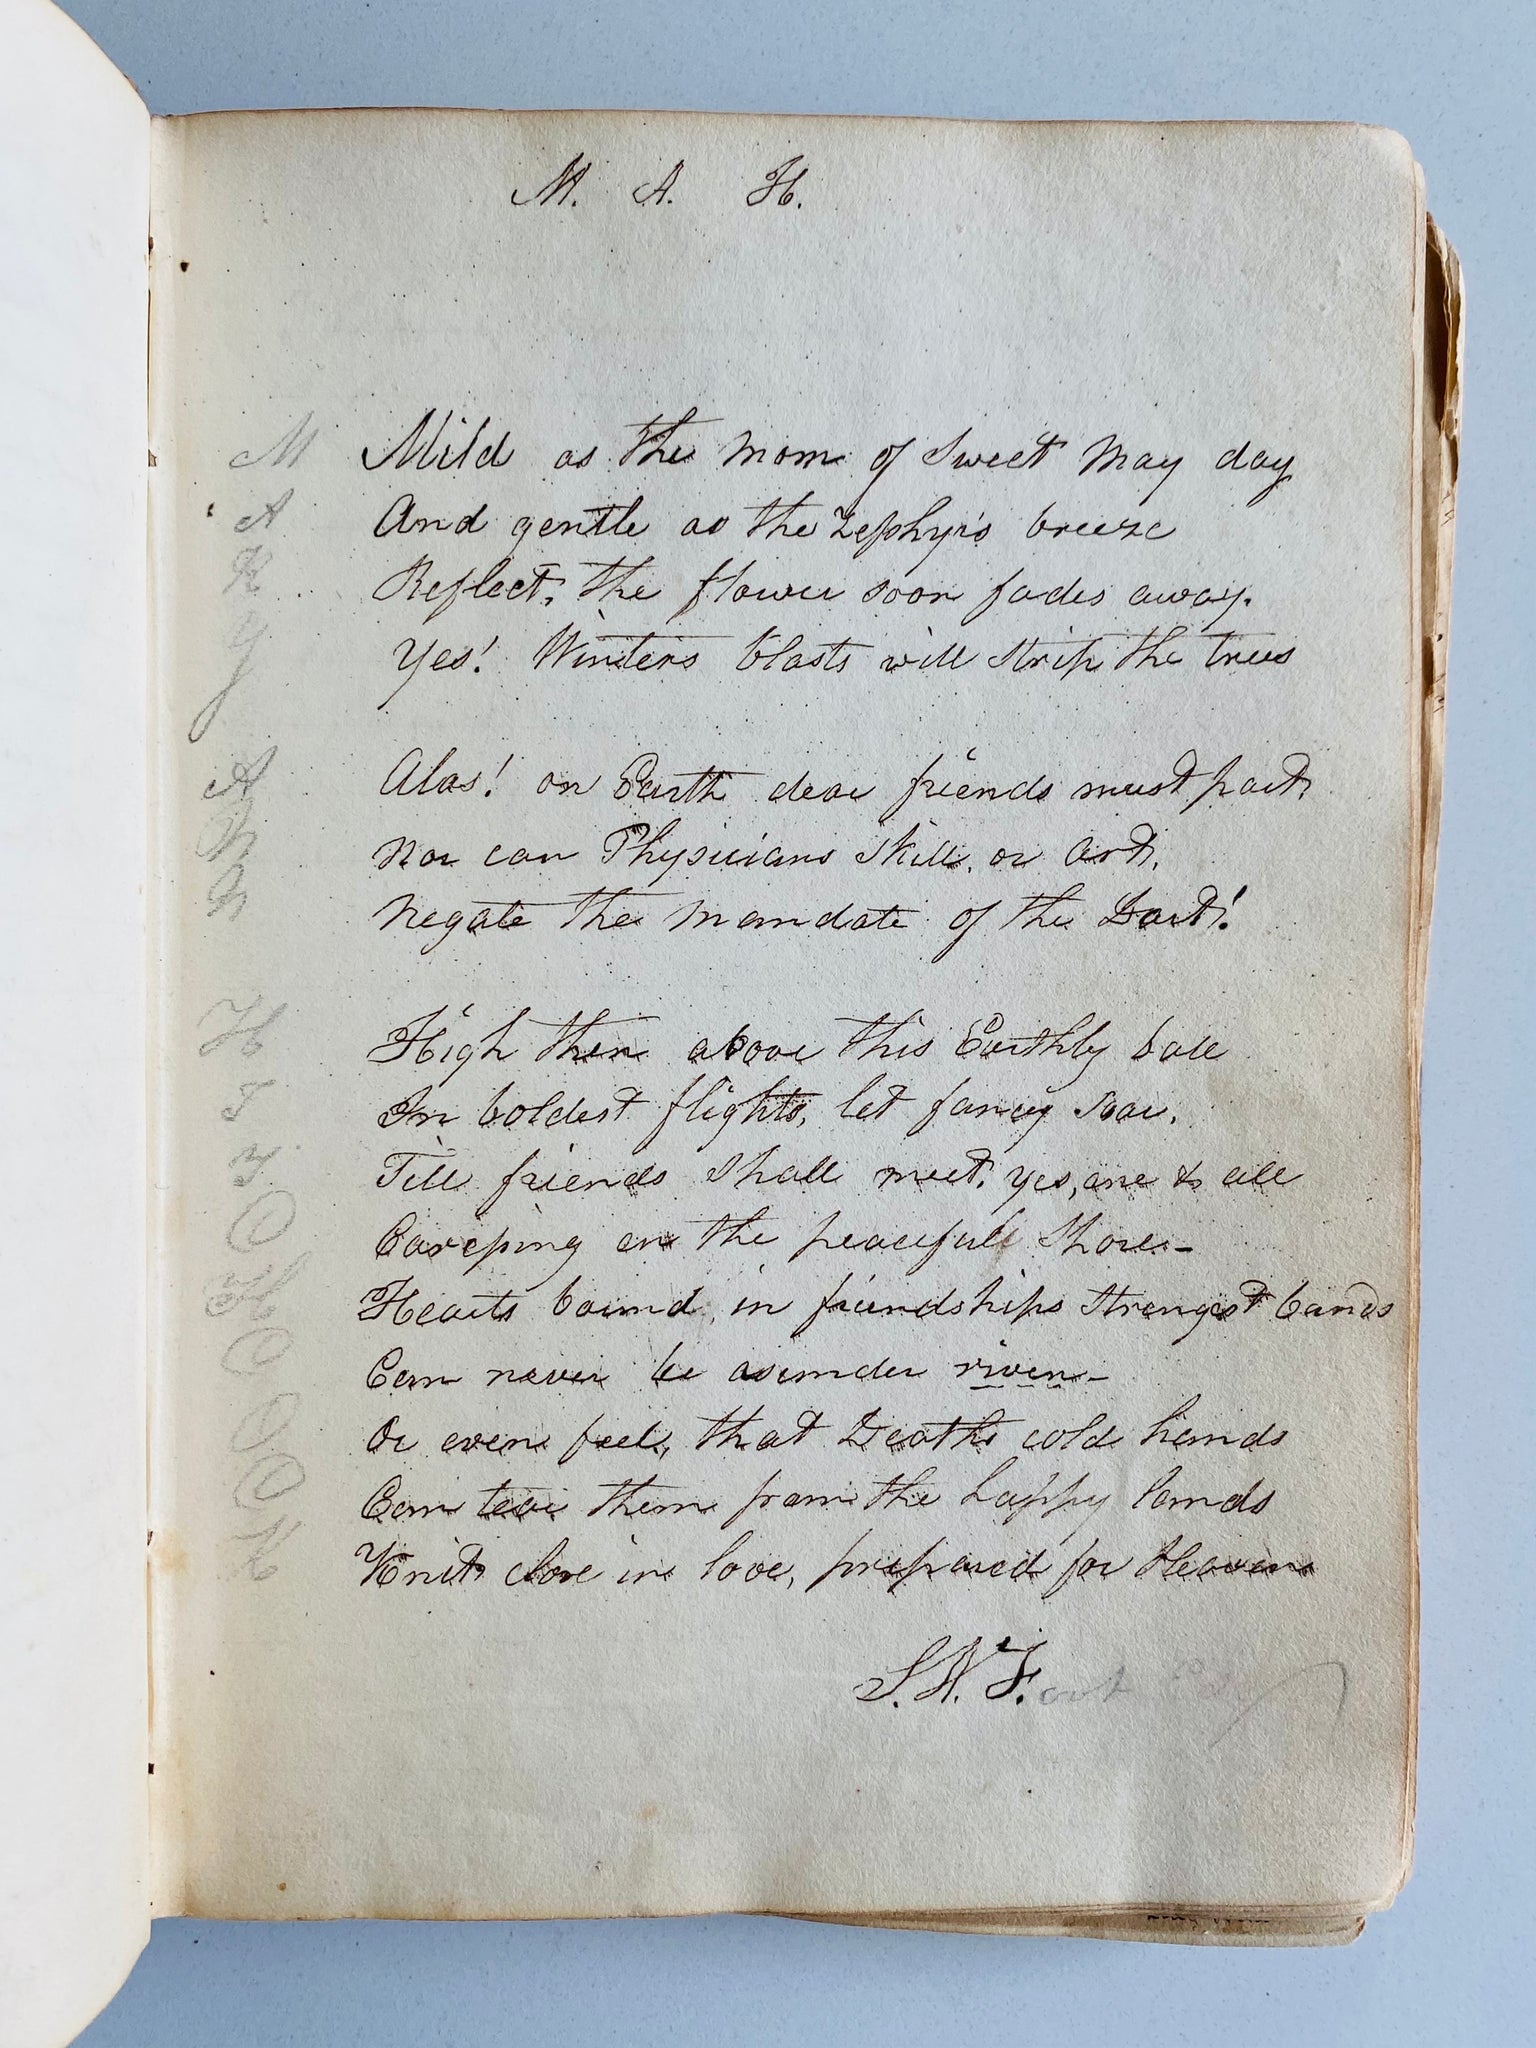 M. A. H.
M Mild as the morn of Sweet May day
A And gentle as the Zephyrs breeze
R Reflect, the flower soon fades away.
Y Yes! Winters blasts will strip the trees
A Alas! on Earth dear friends must part,
N Nor can Physicians Skill, or Art,
N Negate the mandate of the Dart!
H High then above this Earthly ball
I In boldest flights, let fancy Soar,
T Till friends shall meet, yes, one & all
C Careping on the peacefull Shore—
H Hearts bound, in friendships Strongest bands
C Can never be asunder riven—
O Or even feel, that Deaths cold hands
C Can tear them from the happy lands
K Knit close in love, prepared for Heaven
S. N. F.